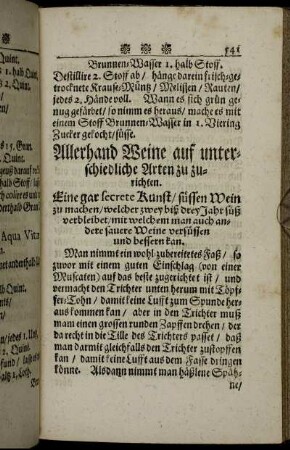 541
Brunnen-Wasser 1. halb Stoff.
Destillire 2. Stoff ab / hänge darein frisch-ge-
trocknete Krause-Müntz / Melissen / Rauten /
jedes 2. Hände voll. Wann es sich grün ge-
nug gefärbet / so nimm es heraus / mache es mit
einem Stoff Brunnen-Wasser in 1. Viering
Zucker gekocht / süsse.
Allerhand Weine auf unter-
schiedliche Arten zu zu-
richten.
Eine gar secrete Kunst / süssen Wein
zu machen / welcher zwey biß drey Jahr süß
verbleibet / mit welchem man auch an-
dere sauere Weine versüssen
und bessern kan.
Man nimmt ein wohl-zubereitetes Faß / so
zuvor mit einem guten Einschlag (von einer
Muscaten) auf das beste zugerichtet ist / und
vermacht den Trichter unten herum mit Töpf-
fer-Tohn / damit keine Lufft zum Spunde her-
aus kommen kan / aber in den Trichter muß
man einen grossen runden Zapffen drehen / der
da recht in die Tille des Trichters passet / daß
man darmit gleichfalls den Trichter zustopffen
kan / damit keine Lufft aus dem Fasse dringen
könne. Alsdann nimmt man häßlene Späh-
ne /
Quint.
Aqua Vitæ
Quint.